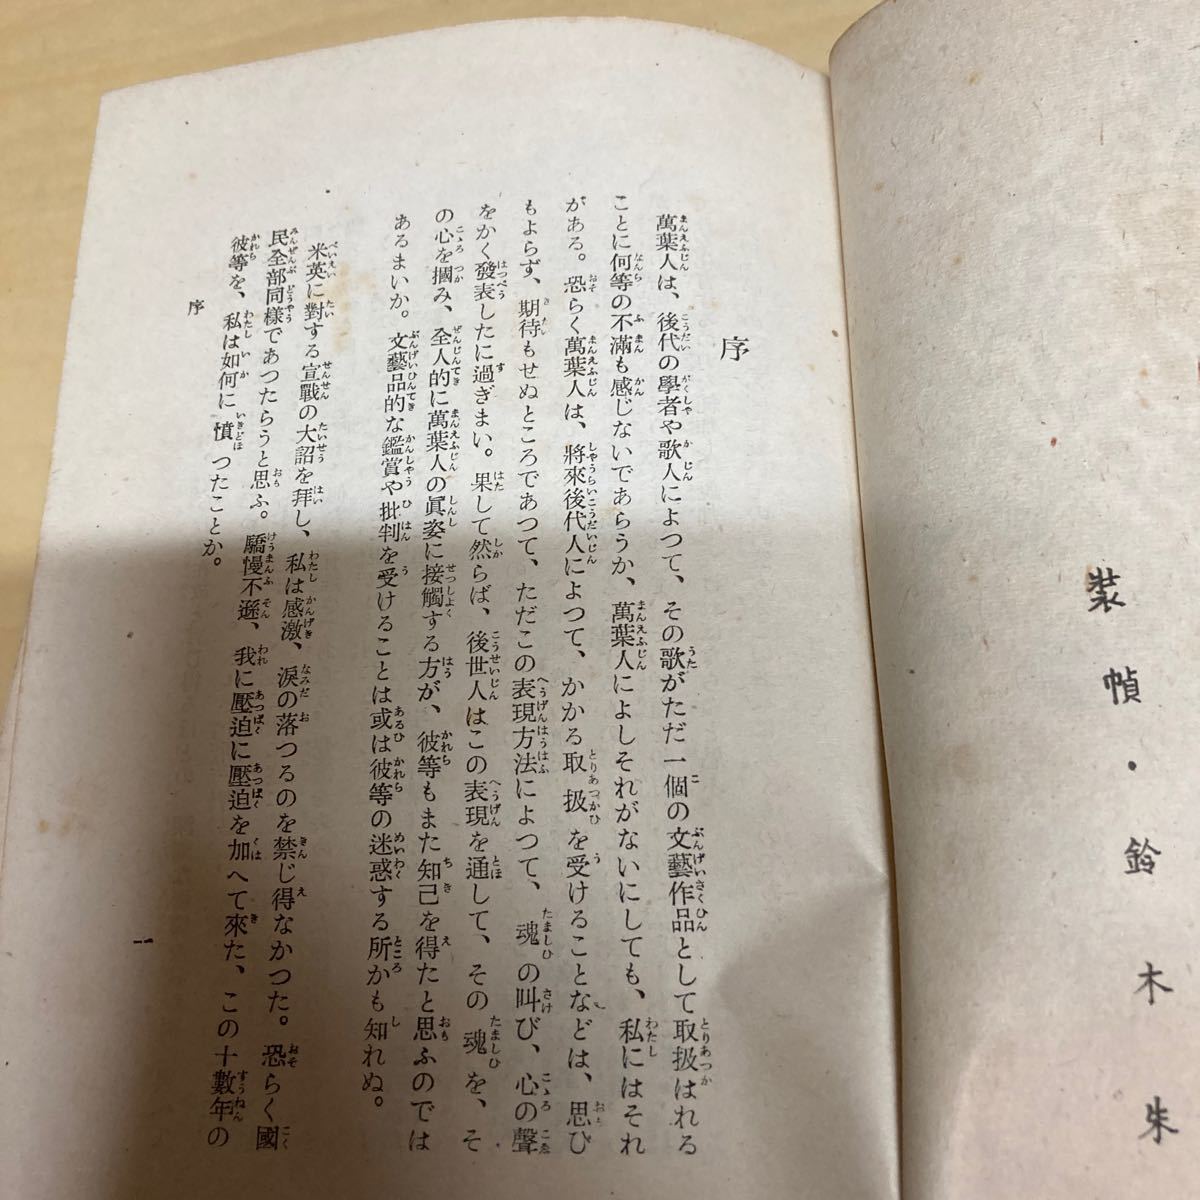 裝幀・鈴木朱
序
萬葉人は、後代の學者や歌人によつて、その歌がただ一個の文藝作品として取扱はれる
ことに何等の不滿も感じないであらうか、萬葉人によしそれがないにしても、私にはそれ
がある。恐らく萬葉人は、將來後代人によつて、かかる取扱を受けることなどは、思ひ
もよらず、期待もせぬところであつて、ただこの表現方法によつて、魂の叫び、心の聲
をかく發表したに過ぎまい。果して然らば、後世人はこの表現を通して、その魂を、そ
の心を摑み、全人的に萬葉人の眞姿に接觸する方が、彼等もまた知己を得たと思ふのでは
あるまいか。文藝品的な鑑賞や批判を受けることは或は彼等の迷惑する所かも知れぬ。
米英に對する宣戰の大詔を拜し、私は感激、淚の落つるのを禁じ得なかつた。恐らく國
民全部同樣であつたらうと思ふ。驕慢不遜、我に壓迫に壓迫を加へて來た、この十數年の
彼等を、私は如何に憤つたことか。
序
一